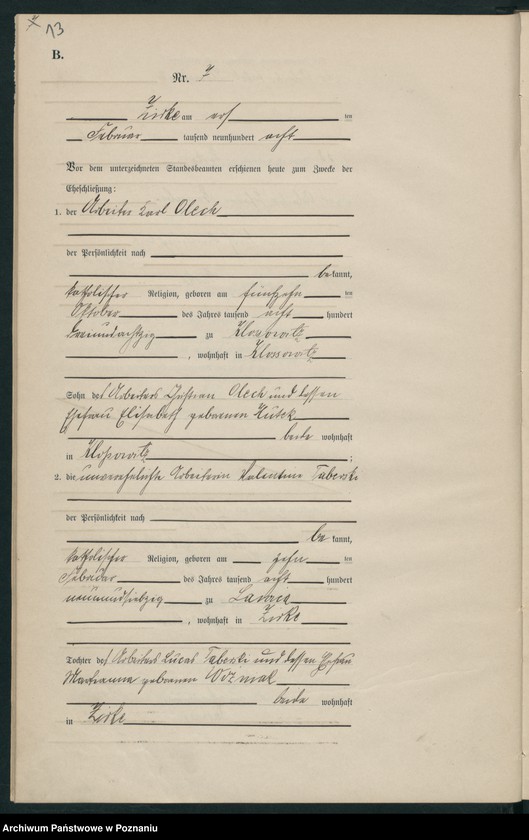 13
B.
Nr. 4
Zirke am elf ten
Februar tausend neunhundert acht
Vor dem unterzeichneten Standesbeamten erschienen heute zum Zwecke der
Eheschließung:
1. der Arbeiter Karl Olech
der Persönlichkeit nach
be kannt,
katholischer Religion, geboren am fünfzehn ten
Oktober des Jahres tausend acht hundert
dreiundachtzig zu
, wohnhaft in
Sohn des Arbeiters Olech und dessen
Ehefrau Elisabeth geborenen
beide wohnhaft
in ;
2. die unverehelichte Arbeiterin Valentina Taberski
der Persönlichkeit nach
be kannt,
katholischer Religion, geboren am zehn ten
Februar des Jahres tausend acht hundert
neunundsiebzig zu
, wohnhaft in Zirke
Tochter des Arbeiters Lucas Taberski und dessen Ehefrau
Marianna geborenen
beide wohnhaft
in Zirke
Archiwum Państwowe w Poznaniu